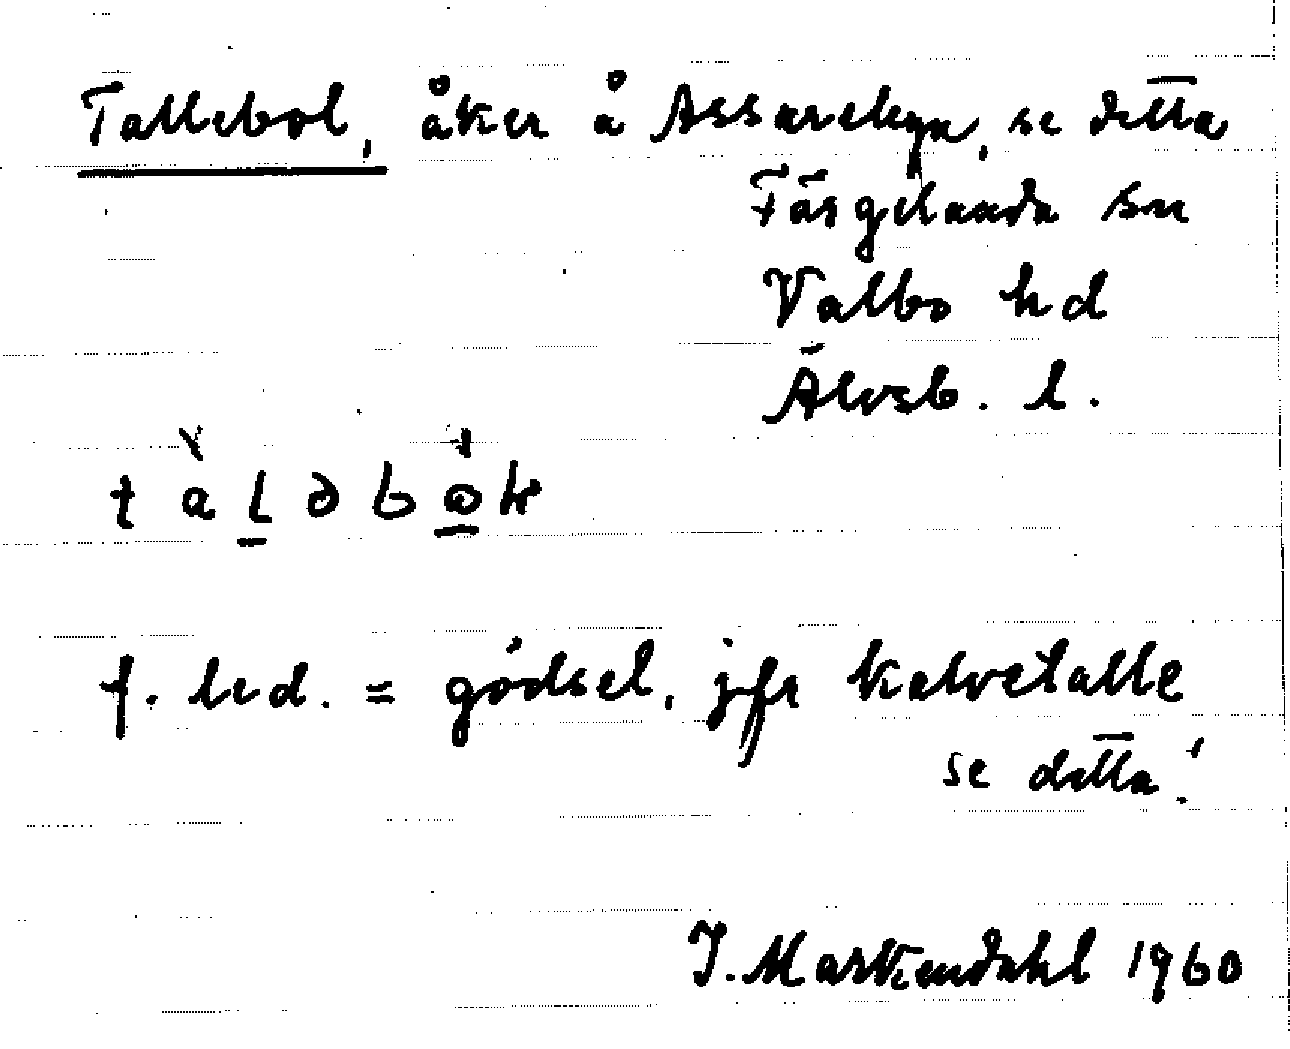 Tallebol, åker å Assarebyn, se detta
Färgelanda sn
Valbo hd
Älvsb. l.
f. led. = gödsel, jfr Kalvetalle
se detta!
J. Markendahl 1960